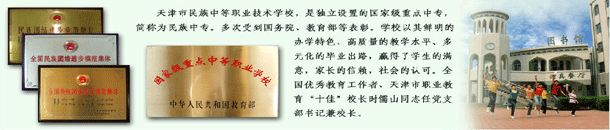 民族团结进步模范集体
全国民族团结进步模范集体
全国民族团结进步模范集体
国家级重点中等职业学校
中华人民共和国教育部
天津市民族中等职业技术学校，是独立设置的国家级重点中专，
简称为民族中专。多次受到国务院、教育部等表彰。学校以其鲜明的
办学特色、高质量的教学水平、多
元化的毕业出路，赢得了学生的满
意，家长的信赖，社会的认可。全
国优秀教育工作者、天津市职业教
育“十佳”校长时儒山同志任党支
部书记兼校长。
图书馆